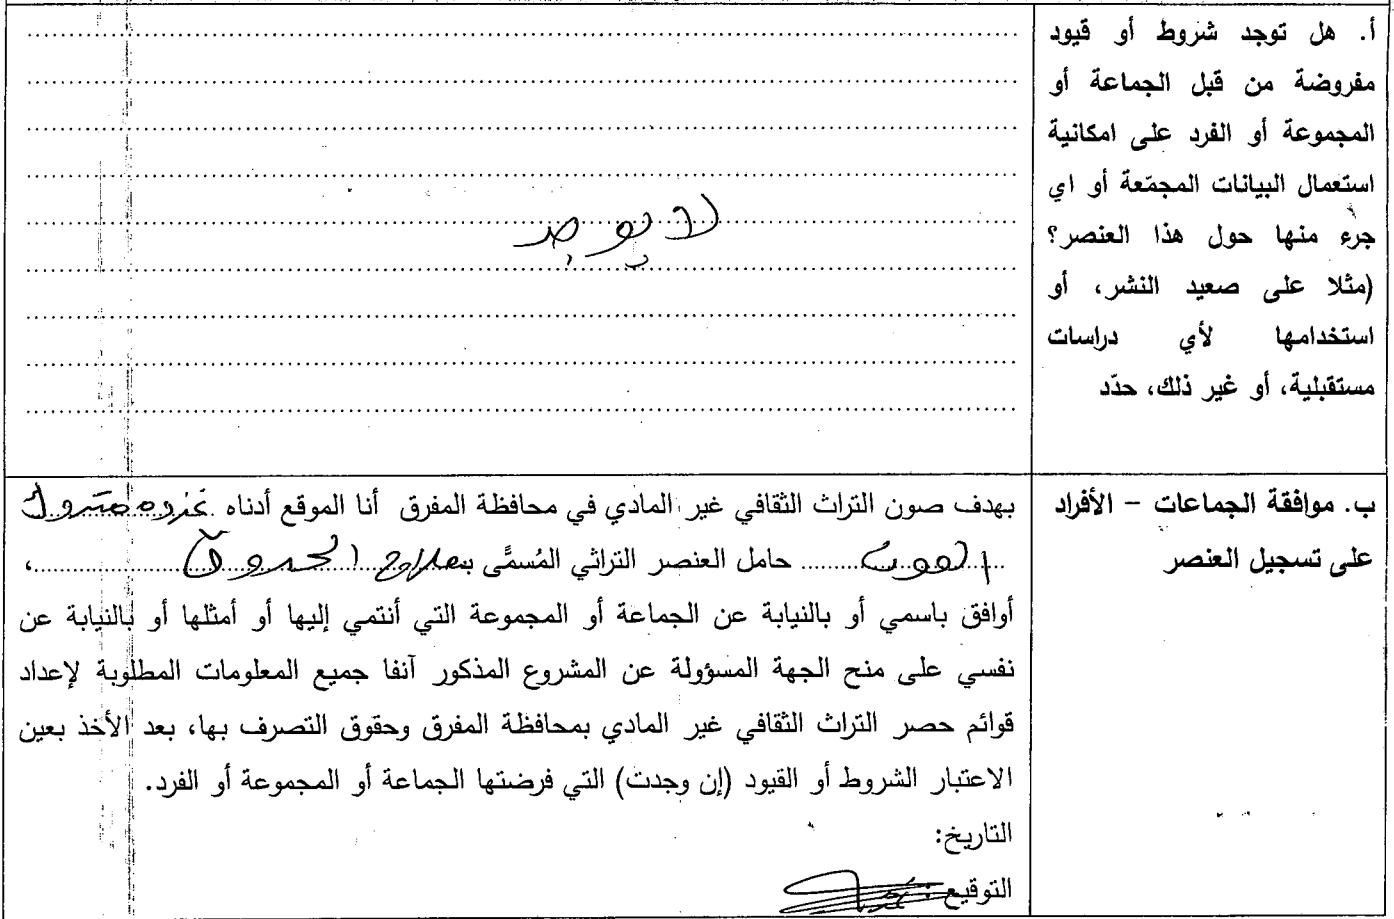 أ. هل توجد شروط أو قيود
مفروضة من قبل الجماعة أو
المجموعة أو الفرد على امكانية
استعمال البيانات المجمّعة أو اي
جرء منها حول هذا العنصر؟
(مثلا على صعيد النشر، أو
استخدامها لأي دراسات
مستقبلية، أو غير ذلك، حدّد
لا يوجد
ب. موافقة الجماعات – الأفراد
على تسجيل العنصر
بهدف صون التراث الثقافي غير المادي في محافظة المفرق أنا الموقع أدناه
حامل العنصر التراثي المُسمَّى بـ علاج الحروق ،
أوافق باسمي أو بالنيابة عن الجماعة أو المجموعة التي أنتمي إليها أو أمثلها أو بالنيابة عن
نفسي على منح الجهة المسؤولة عن المشروع المذكور آنفا جميع المعلومات المطلوبة لإعداد
قوائم حصر التراث الثقافي غير المادي بمحافظة المفرق وحقوق التصرف بها، بعد الأخذ بعين
الاعتبار الشروط أو القيود (إن وجدت) التي فرضتها الجماعة أو المجموعة أو الفرد.
التاريخ:
التوقيع: